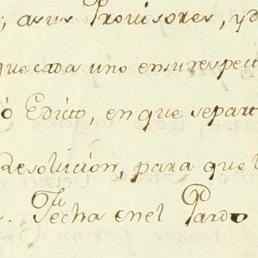 ; asus Provisores, y d
que cada uno ensu respect
ó Edicto, en que separt
Resolucion, para que l
. Fecha en el Pardo